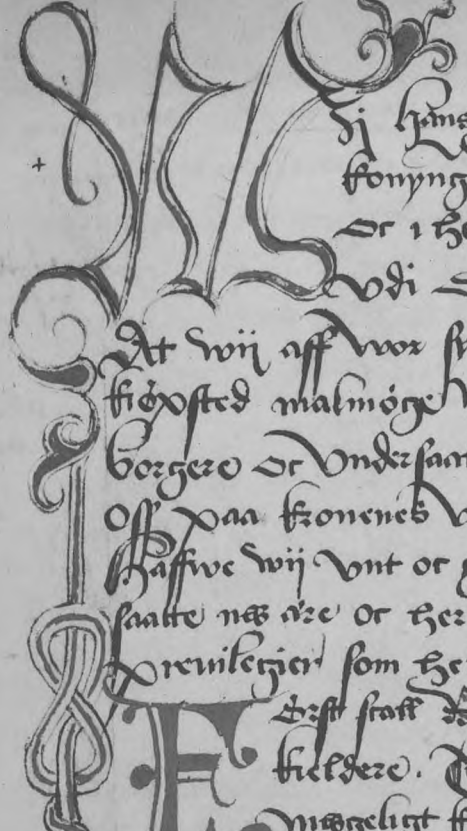 Wij hans
konyng
oc i he
vdi
At wij aff wor sy
kiøpsted malmøge
borgere oc vndersaat
Oss paa kronenes
haffwe wij vnt oc
saatte oc her
preuilegier som he
Først scall
kieldere.